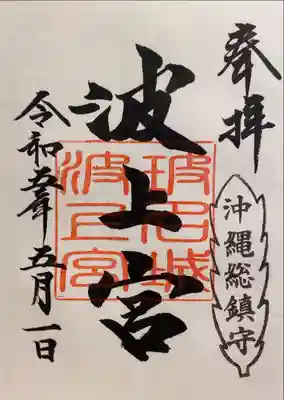 奉拝
沖縄総鎮守
波上宮
波上宮
令和五年五月一日